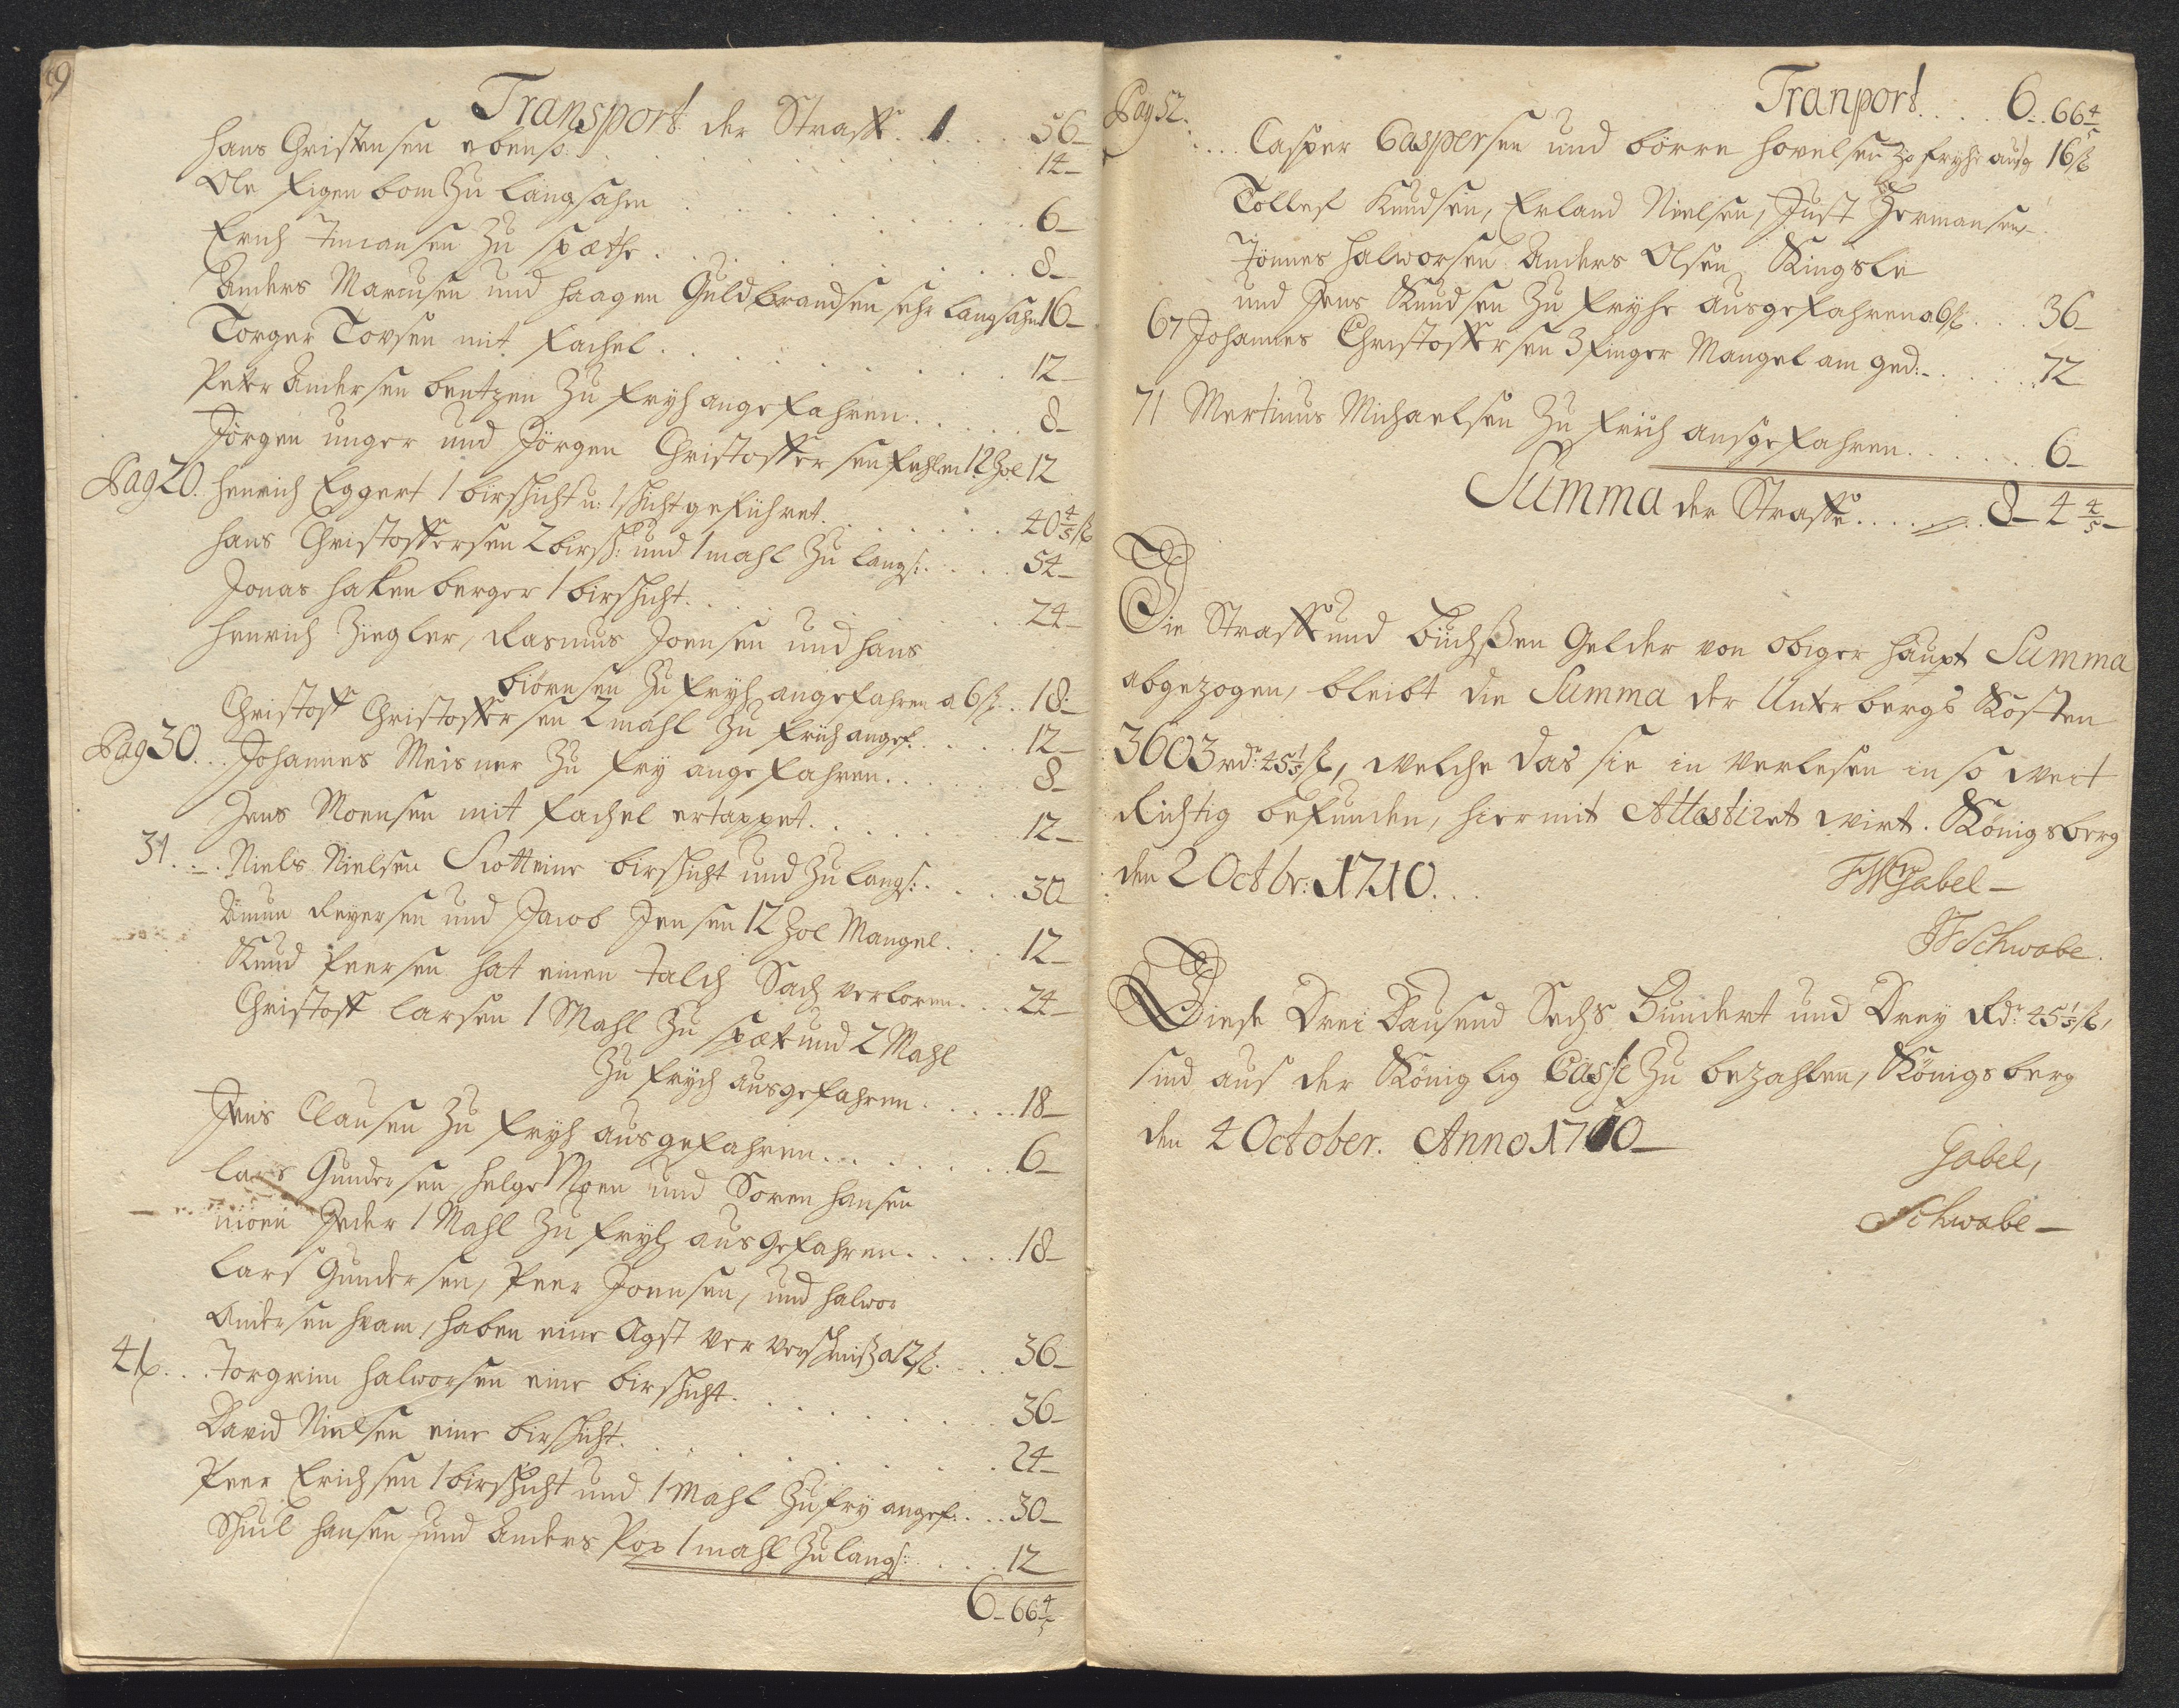 Transport der Straffe . 1 . . . 56_
Hans Christensen ebenso . . . . . . 14_
Ole Eigenbom zu langsahm . . . . . 6_
Erich Amansen zu spæthe . . . . . 8_
Anders Marcusen und Haagen Guldbrandsen sehr langsahm 16_
Torger Torsen mit fachel . . . . . 12_
Peter Andersen bentzen zu fryh angefahren . . . . 8_
Jörgen unger und Jörgen Christoffersen fehlen 12 Zol 12
Pag 20. Henrich Eggert 1 birschicht u: 1 schicht geführet . . . . 40 4/5 ß
Hans Christoffersen 2 birsch: und 1 mahl zu langs: . . . . 54_
Jonas Hakenberger 1 birschicht . . . . . 24_
Henrich Ziegler, Rasmus Joensen und Hans
biörnsen zu fryh angefahren a 6 ß . . 18_
Christoff Christoffersen 2 mahl zu früh angef: . . . . 12_
Pag 30 . . Johannes Meisner zu fry angefahren . . . . 8_
Jens Moensen mit fachel ertappet . . . . . 12_
31 . _ . Niels Nielsen Slotteine birschicht und zu langs: . . . . 30_
Amun Reyersen und Jacob Jensen 12 Zol Mangel . . . 12_
Knud Peersen hat einen Talch Sach verloren . . . 24_
Christoff Larsen 1 Mahl zu spæt und 2 Mahl
zu frych ausgefahren . . . . . 18_
Jens Clausen zu fryh ausgefahren . . . . . . 6_
Lars Gundersen Helge Moen und Soren Hansen
moen Jeder 1 Mahl zu fryh ausgefahren . . . . . 18_
Lars Gundersen, Peer Joensen, und Halvor
Andersen Hvam, haben eine Agst ver verschmiß a 12 ß . . . 36_
41 . . . Torgrim Halvorsen eine birschicht . . . . . . 36_
David Nielsen eine birschicht . . . . . . 24_
Peer Erichsen 1 birschicht und 1 Mahl zu fry angef: . . . 30_
Schiul Hansen und Anders Pox 1 mahl zu langs: . . . . 12
6_ 66 4/5
Pag 52. Tranport . . . . 6 . . 66 4/5
. . . . Casper Caspersen und börre Hovelsen zu fryhe ausg 16 ß
Tollef Knudsen, Erland Nielsen, Just Hermansen,
Jönnes Halvorsen Anders Olsen Kingsle
und Jens Knudsen zu fryhe ausgefahren a 6 ß . . . 36_
67 Johannes Christoffersen 3 finger Mangel am ged: _ . . . . 72
71 Mertinus Michaelsen zu früch ausgefahren . . . . . . 6_
Summa der Straffe . . . . . . 8_ 4 4/5 _
Die Straff und Büchßen Gelder von obiger Haupt Summa
abgezogen, bleibt die Summa der Unterbergs Kosten
3603 rd: 45 1/5 ß, welche das sie in verlesen in so weit
Richtig befunden, hiermit Attestiret wirt. Königsberg
den 2 Octbr: 1710 . .
FWGabel_
JFSchwabe.
Diese Drei Dausend Sechs Hundert und Drey Rd: 45 1/5 ß,
sind aus der Königlig Casse zu bezahlen, Königsberg
den 4 October. Anno 1710_
Gabel,
Schwabe_